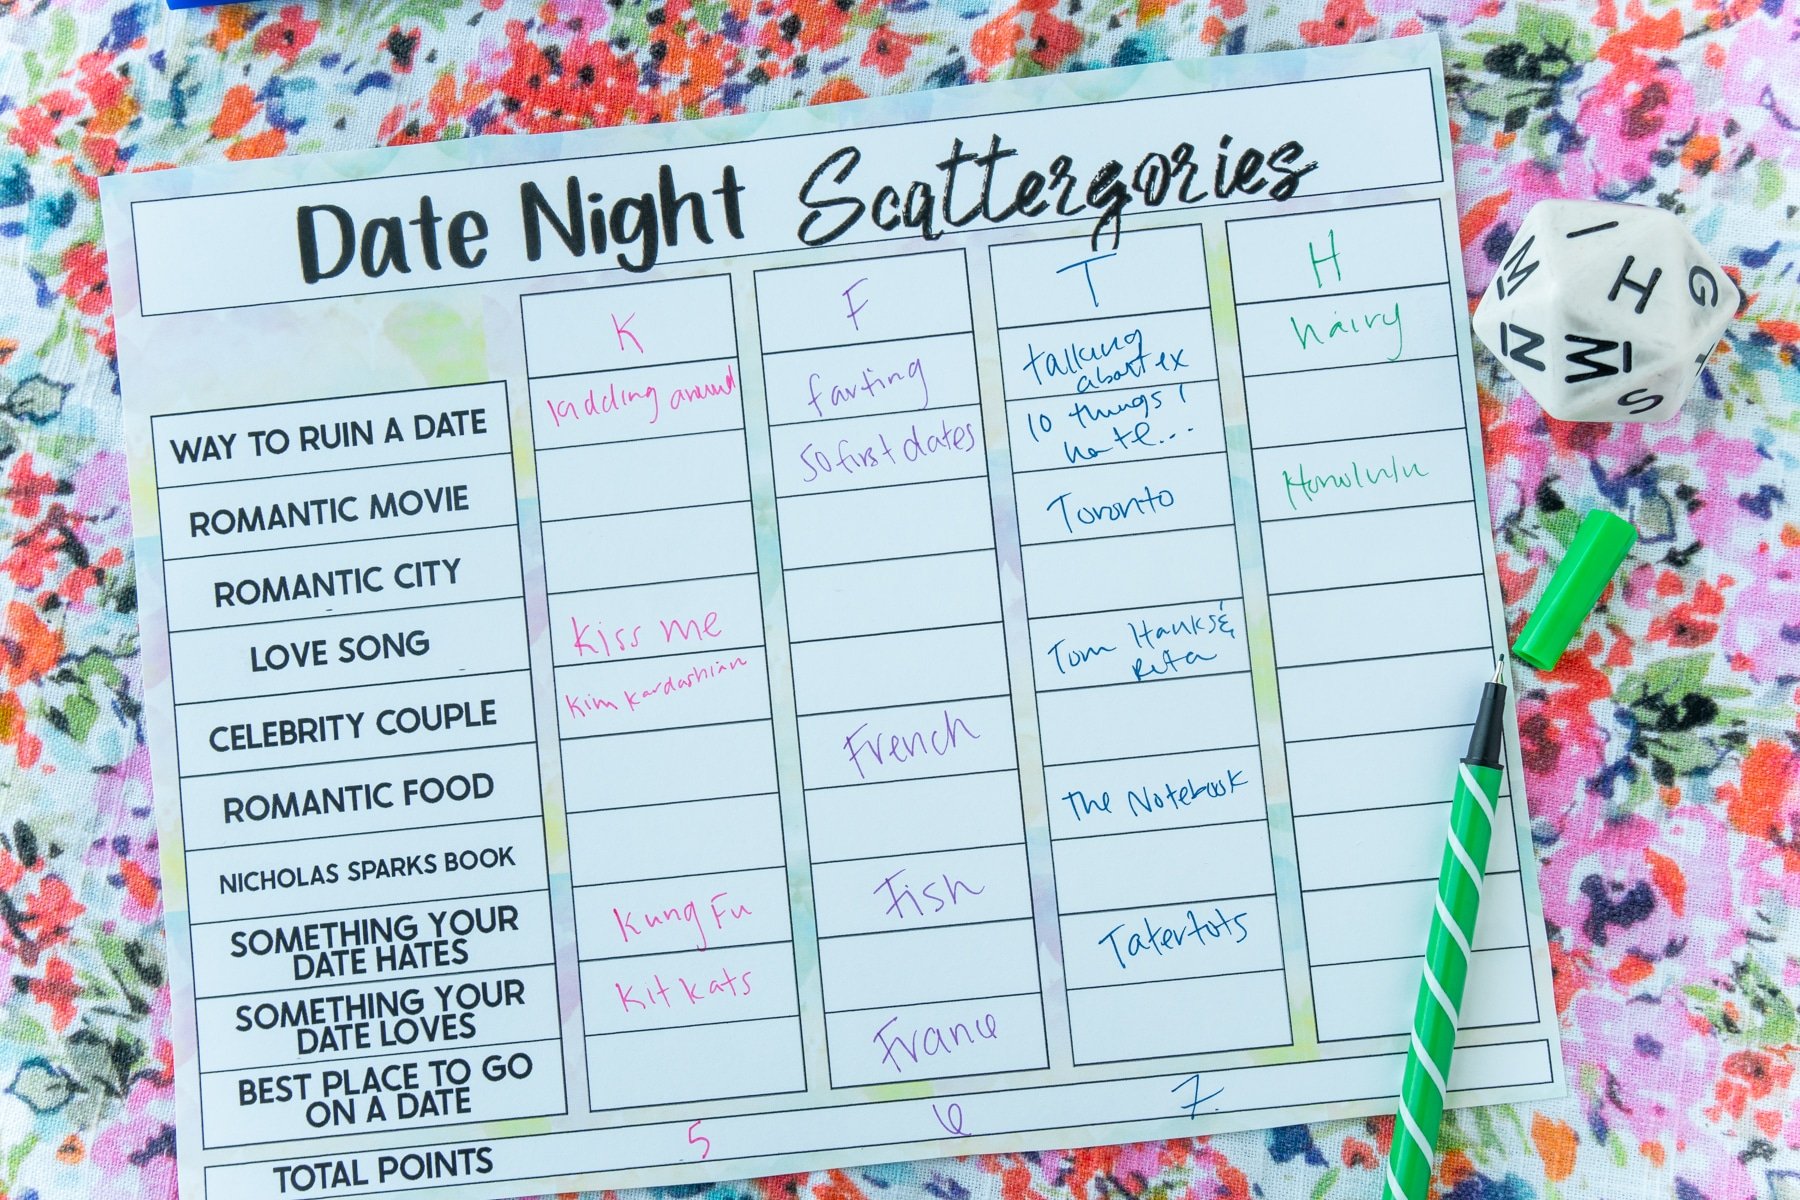 Date Night Scattergories
K F T H
WAY TO RUIN A DATE
kidding around
farting
talking
about ex
hairy
ROMANTIC MOVIE
50 first dates
10 things i
hate...
ROMANTIC CITY
Toronto
Honolulu
LOVE SONG
Kiss me
CELEBRITY COUPLE
Kim Kardashian
Tom Hanks &
Rita
ROMANTIC FOOD
French
NICHOLAS SPARKS BOOK
The Notebook
SOMETHING YOUR
DATE HATES
Kung Fu
Fish
SOMETHING YOUR
DATE LOVES
Kit kats
Tatertots
BEST PLACE TO GO
ON A DATE
France
TOTAL POINTS
5 6 7.
I
M
H
G
N
M
S